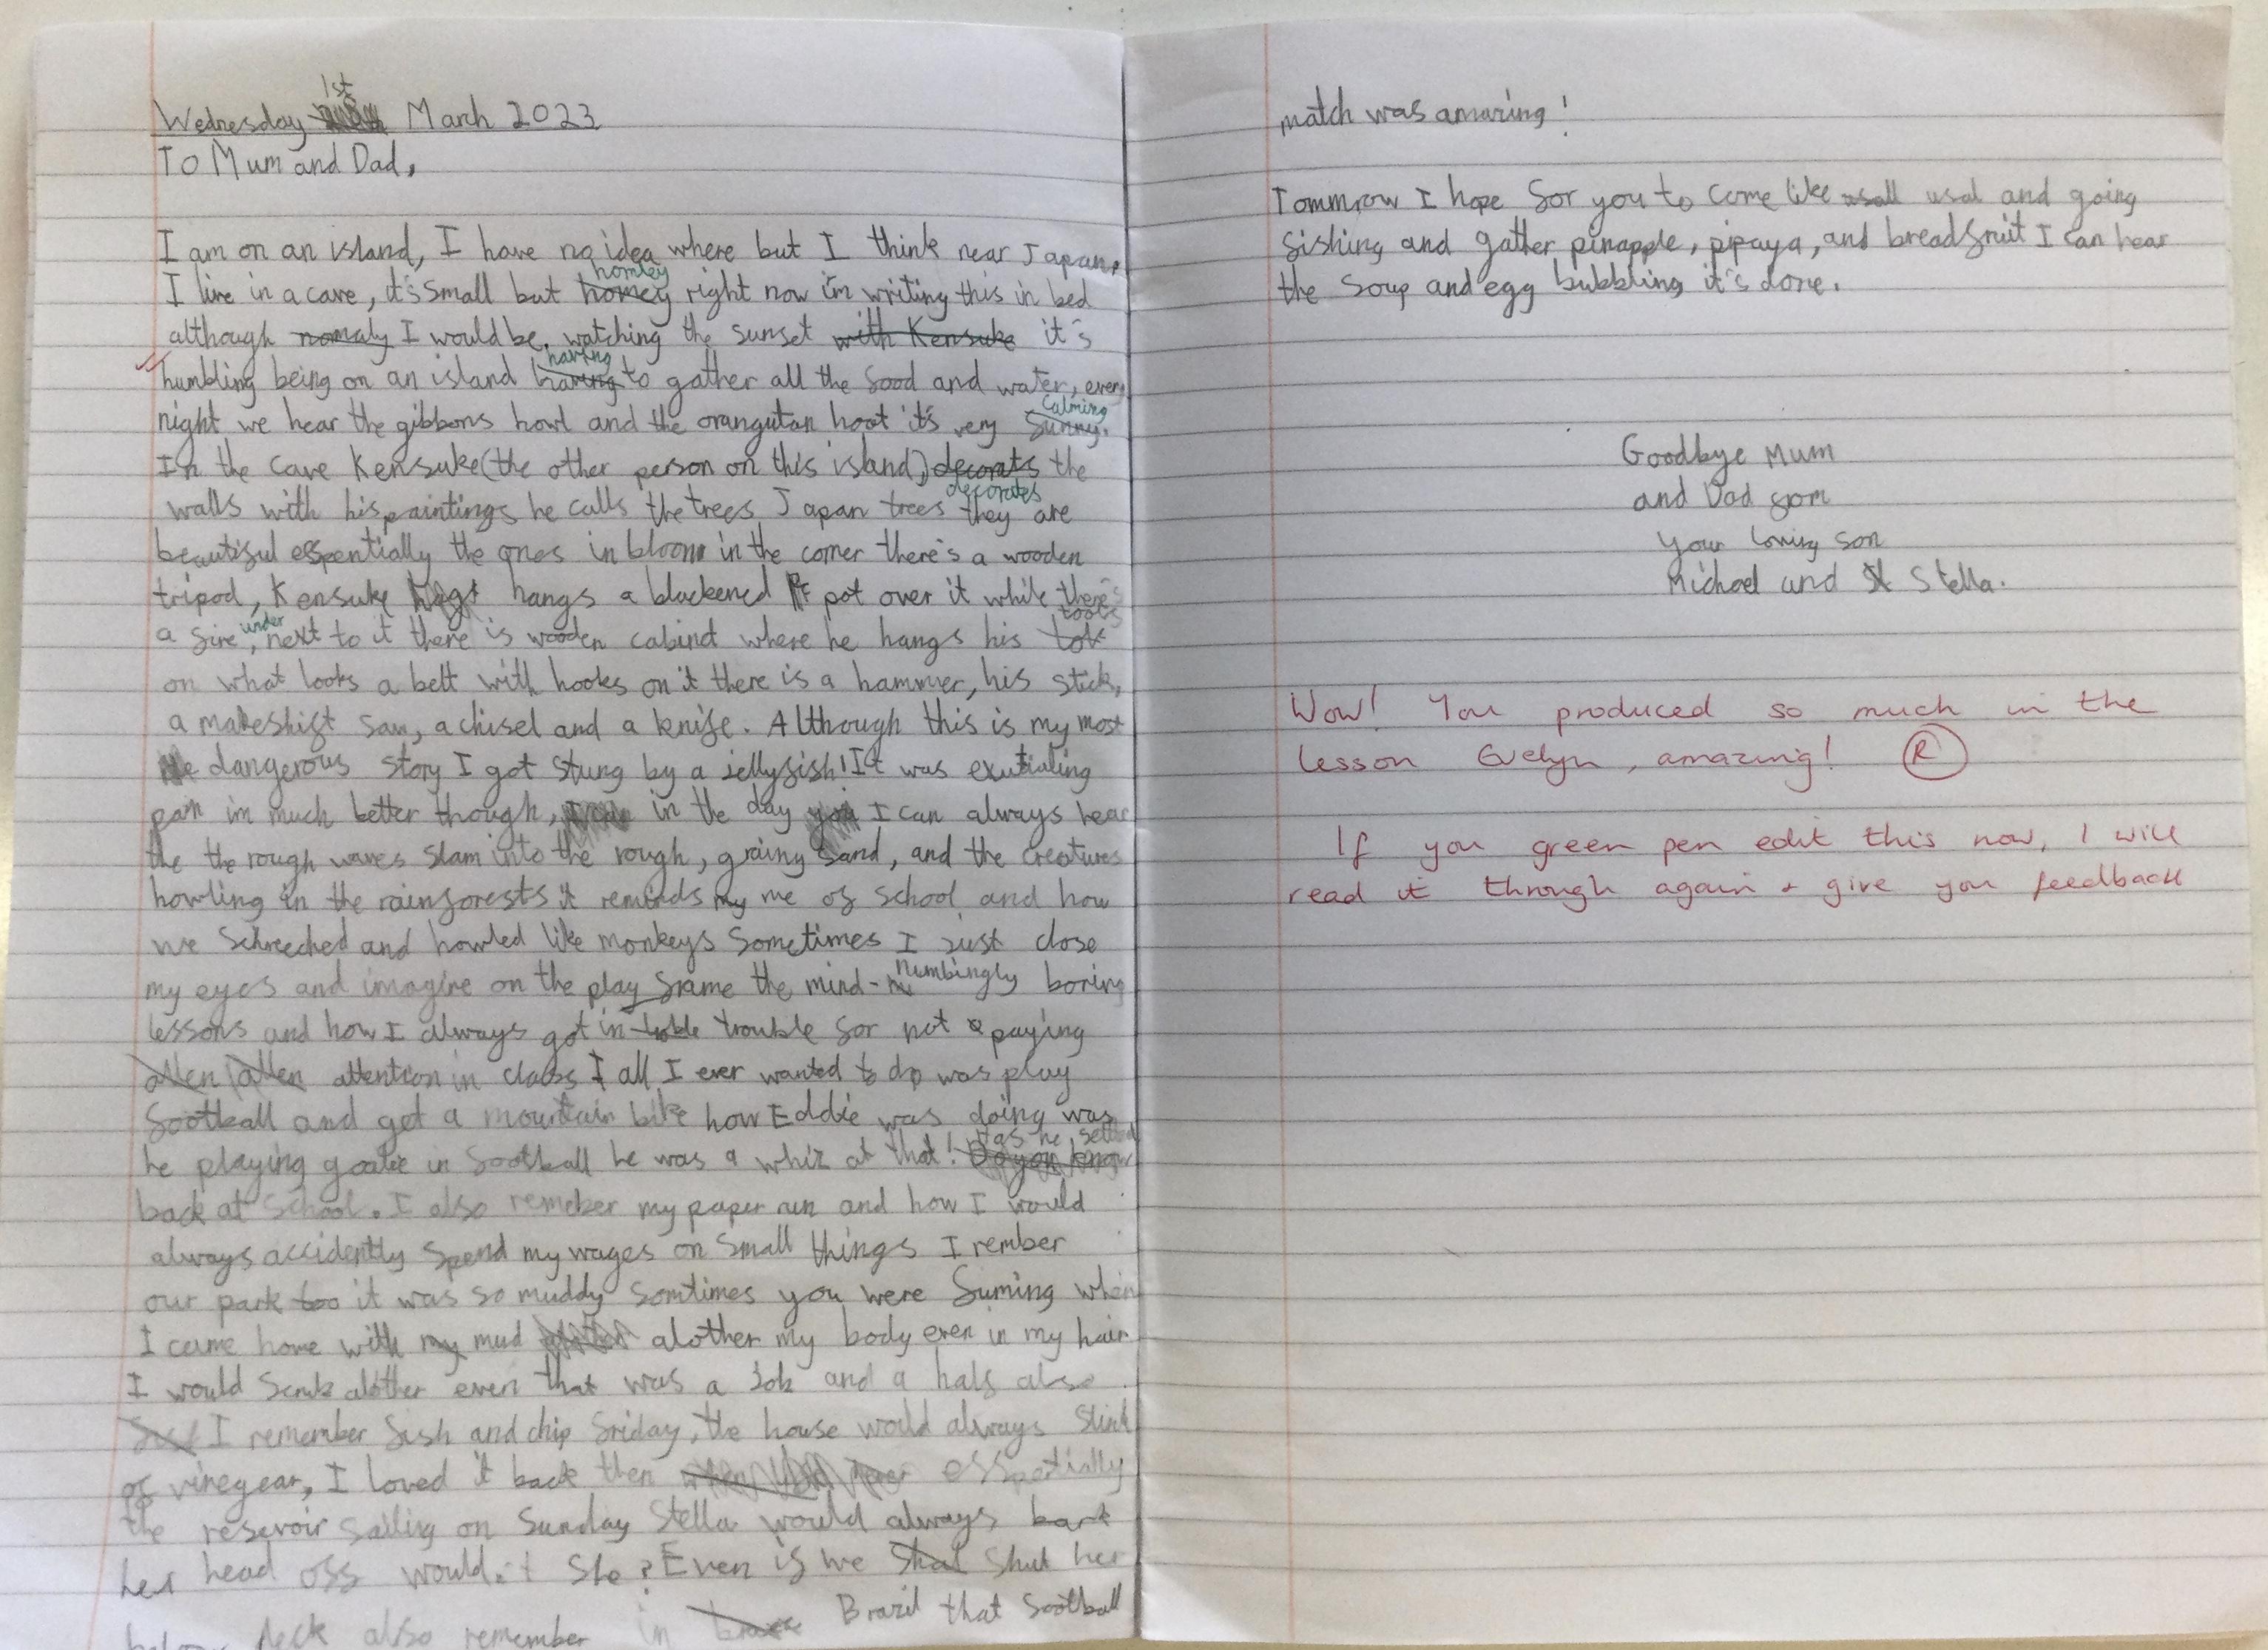 1st
Wednesday March 2023
To Mum and Dad,
I am on an island, I have no idea where but I think near Japan,
homley
I live in a cave, it's small but homey right now i'm writing this in bed
although nomaly I would be, watching the sunset with Kensuke it's
having
humbling being on an island having to gather all the food and water, every
calming
night we hear the gibbons howl and the orangutan hoot it's very funny.
In the cave Kensuke (the other person on this island,) decorats the
decorates
walls with his paintings he calls the trees Japan trees they are
beautiful espentially the ones in bloom in the corner there's a wooden
tripod, Kensuke hangs a blackened pot over it while there's
under tools
a fire, next to it there is wooden cabinet where he hangs his tok
on what looks a belt with hooks on it there is a hammer, his stick,
a makeshift saw, a chisel and a knife. Although this is my most
dangerous story I got stung by a jellyfish! It was exutialing
pain im much better though, in the day I can always hear
the the rough waves slam into the rough, grainy sand, and the creatures
howling in the rainforests it reminds my me of school and how
we schreeched and howled like monkeys sometimes I just close
numbingly
my eyes and imagine on the play frame the mind- boring
lessons and how I always got in troble trouble for not paying
atten atten attention in class I all I ever wanted to do was play
football and get a mountain bike how Eddie was doing was
Has he settled
he playing goalie in football he was a whiz at that! Do you know
back at school. I also remeber my paper run and how I would
always accidently spend my wages on small things I rember
our park too it was so muddy somtimes you were fuming when
I came home with my mud alother my body even in my hair
I would scrub alother even that was a job and a half also
I remember fish and chip friday, the house would always stink
of vinegear, I loved it back then esspetially
the resevoir sailing on Sunday Stella would always bark
her head off would't she? Even if we shut her
below deck also remember in Brazil that football
match was amazing!
Tommrow I hope for you to come like usall usal and going
fishing and gatter pinapple, pipaya, and breadfruit I can hear
the soup and egg bubbling it's done.
Goodbye Mum
and Dad from
your loving son
Michael and Stella.
Wow! You produced so much in the
lesson Evelyn, amazing! R
If you green pen edit this now, I will
read it through again + give you feedback